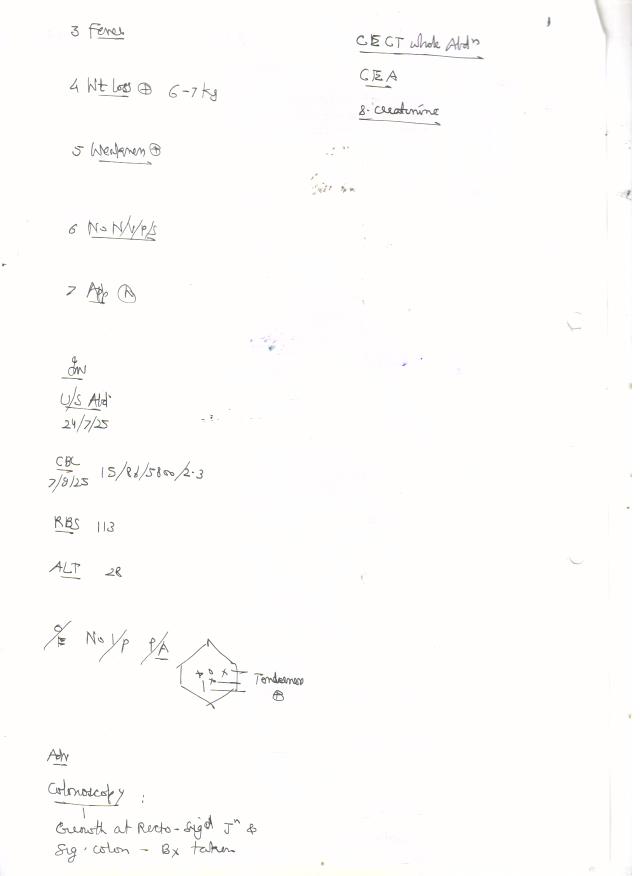 3 Fever
CECT whole Abdn
CEA
S. creatinine
4 Wt Loss ⊕ 6-7 kg
5 Weakness ⊕
6 No N/V/P/S
7 App Ⓝ
Inv
U/S Abd
24/7/25
CBC
7/8/25 15/86/5800/2.3
RBS 113
ALT 28
O/E No I/P P/A
Tenderness
⊕
Adv
Colonoscopy :
Growth at Recto-Sigd Jn &
Sig. colon - Bx taken